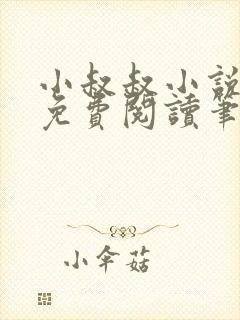 小叔叔小說
免費閱讀筆
小傘菇